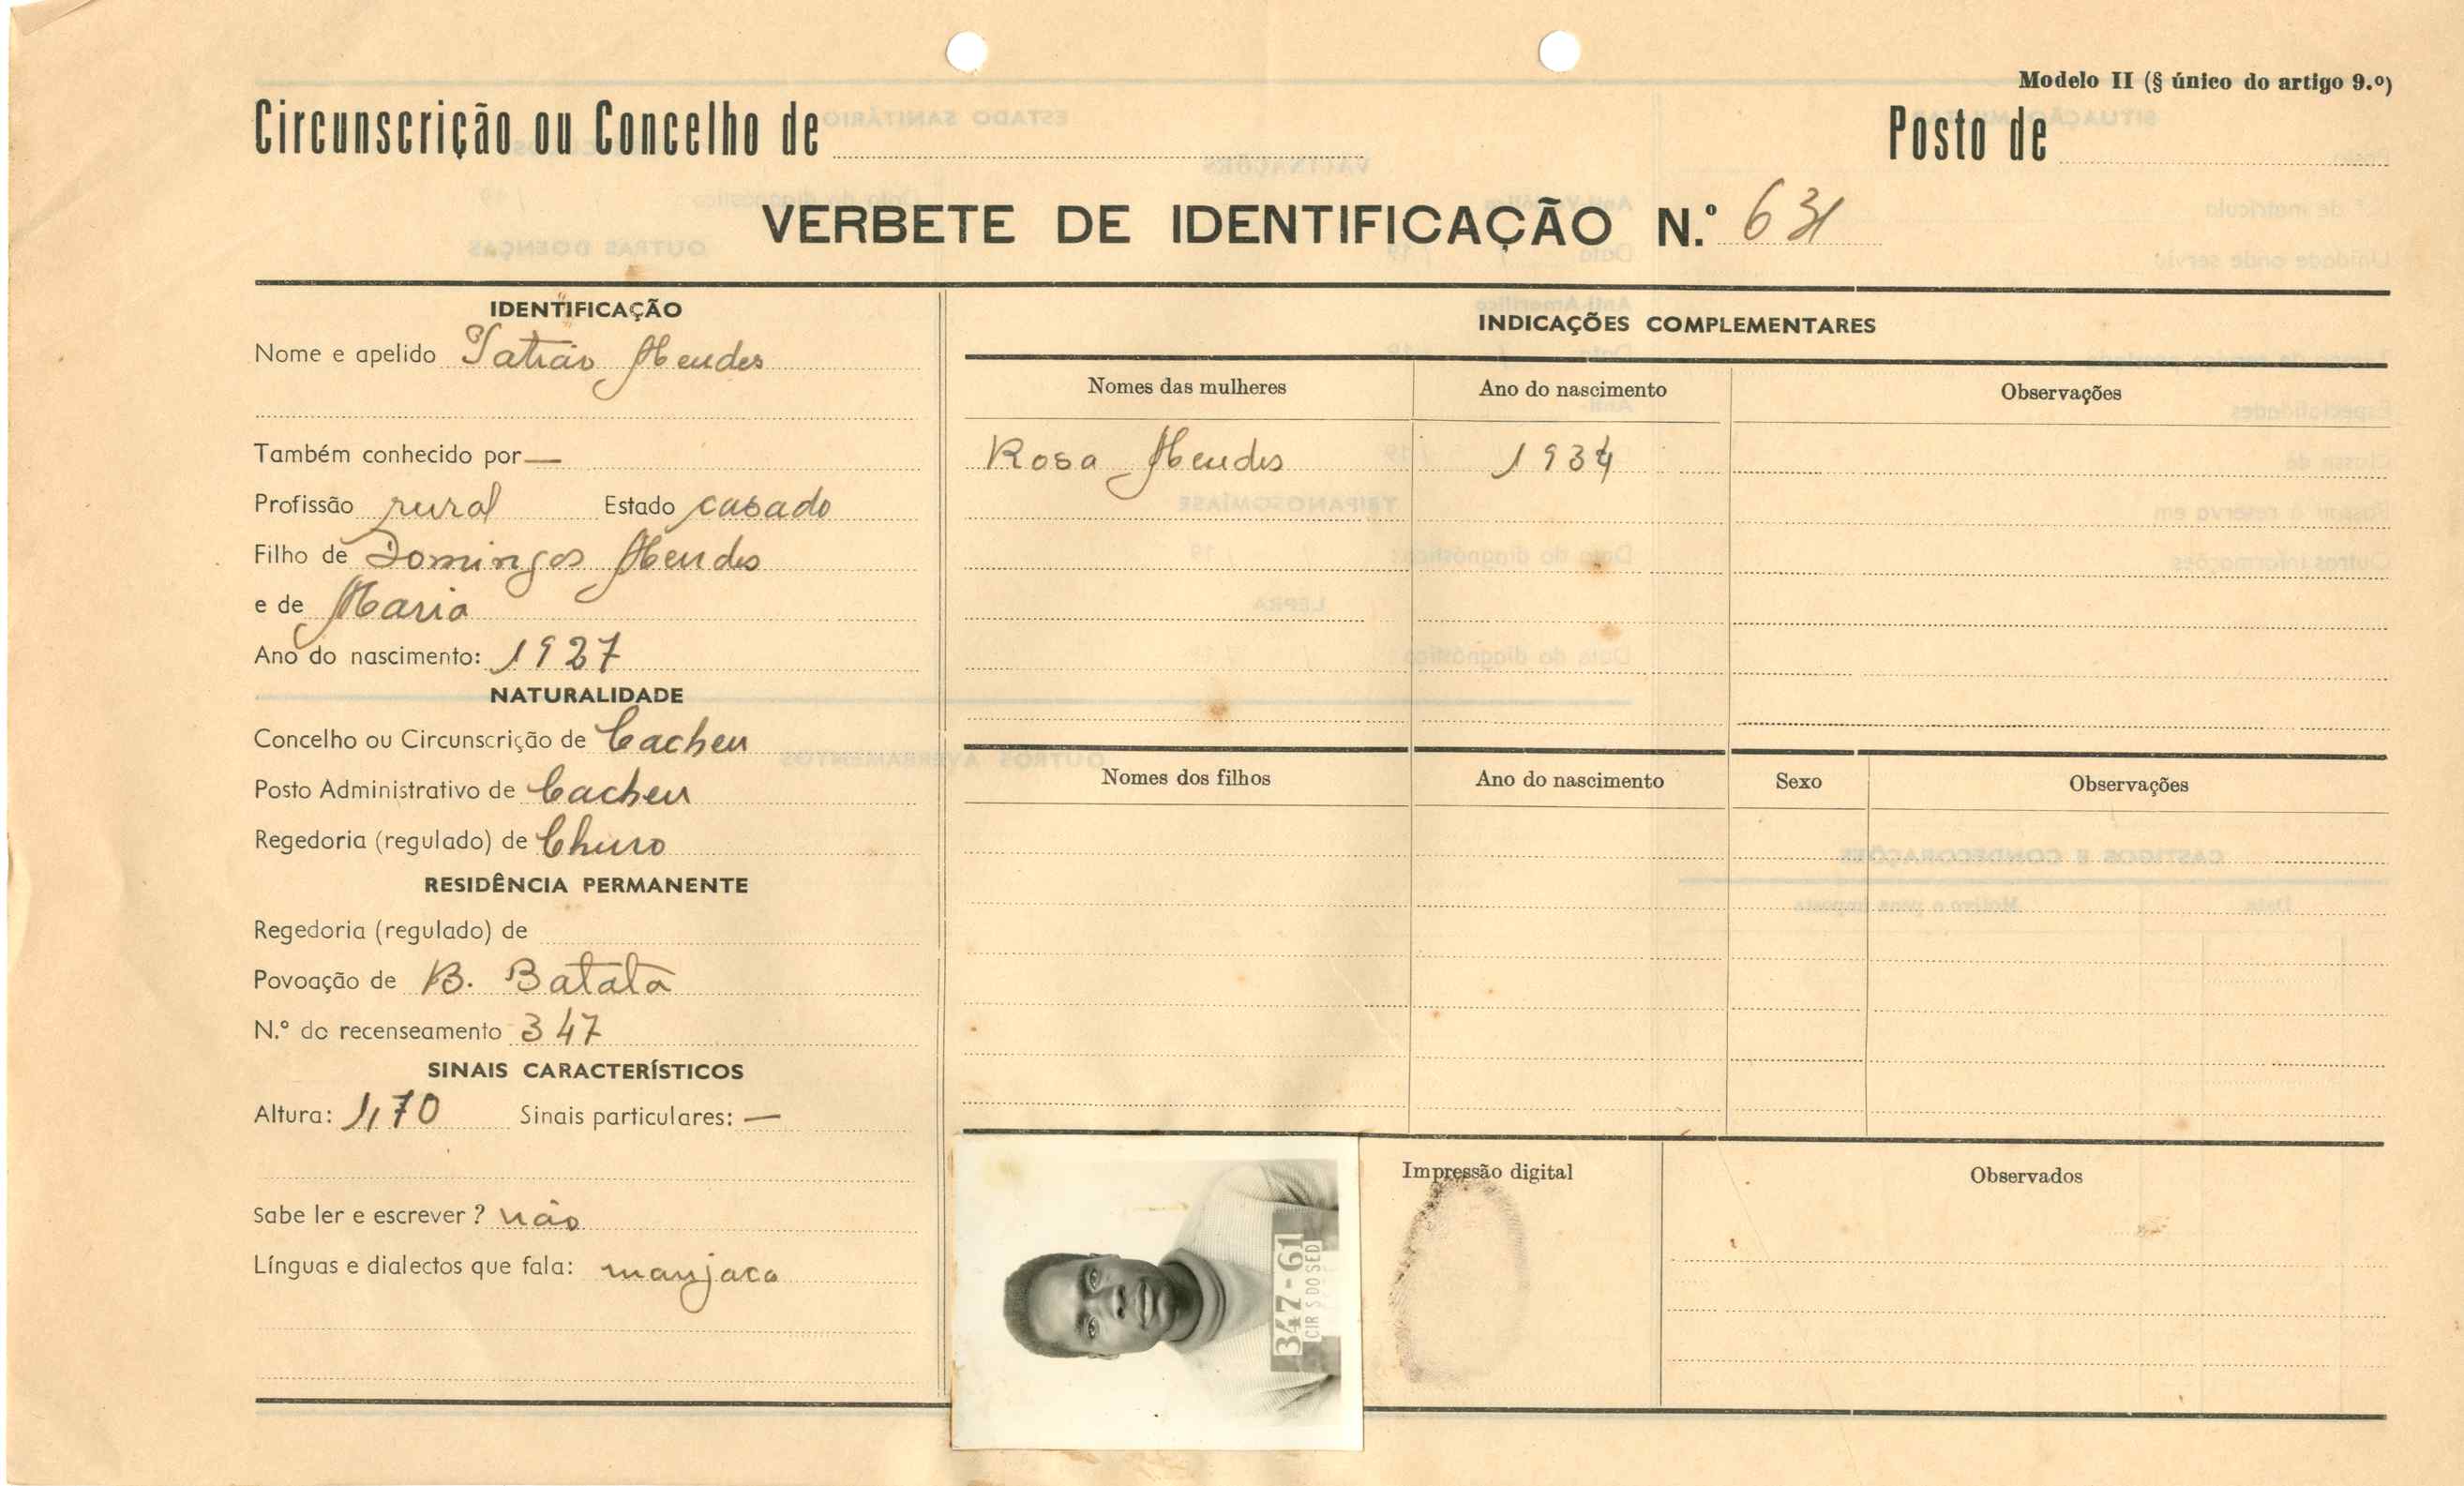 Modelo II (§ único do artigo 9.º)
Circunscrição ou Concelho de
Posto de
VERBETE DE IDENTIFICAÇÃO N.º 631
IDENTIFICAÇÃO
Nome e apelido Patrão Mendes
Também conhecido por —
Profissão rural Estado casado
Filho de Domingos Mendes
e de Maria
Ano do nascimento: 1927
NATURALIDADE
Concelho ou Circunscrição de Cacheu
Posto Administrativo de Cacheu
Regedoria (regulado) de Churo
RESIDÊNCIA PERMANENTE
Regedoria (regulado) de
Povoação de B. Batata
N.º do recenseamento 347
SINAIS CARACTERÍSTICOS
Altura: 1,70 Sinais particulares: —
Sabe ler e escrever? não
Línguas e dialectos que fala: manjaca
INDICAÇÕES COMPLEMENTARES
Nomes das mulheres Ano do nascimento Observações
Rosa Mendes 1934
Nomes dos filhos Ano do nascimento Sexo Observações
347-61
CIR S DO SED
Impressão digital
Observados